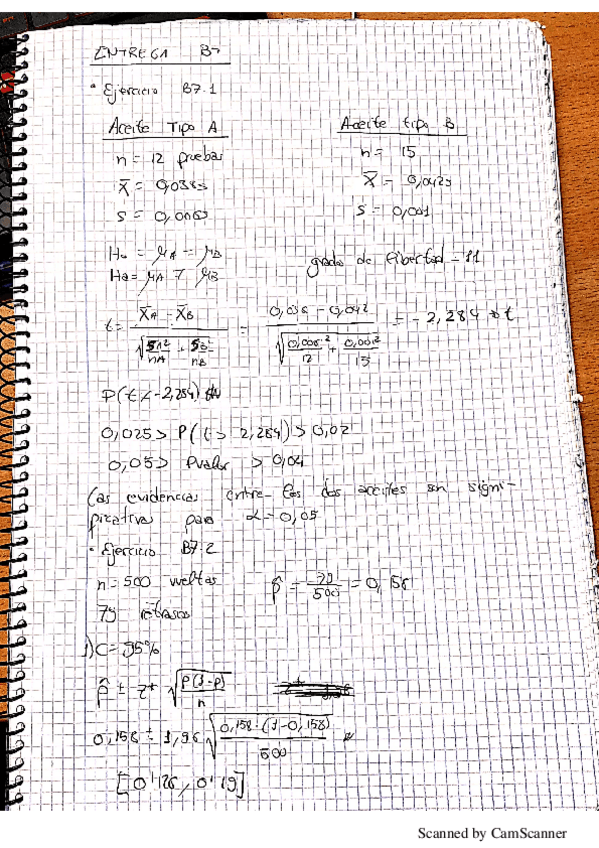 ENTREGA B7
• Ejercicio B7.1
Aceite Tipo A
n = 12 pruebas
X̄ = 0,0383
S = 0,0063
Aceite tipo B
n = 15
X̄ = 0,0423
S = 0,001
H₀ = μA = μB
Ha = μA ≠ μB
grados de libertad = 11
t = X̄A - X̄B / √(SA²/nA + SB²/nB) = 0,038 - 0,042 / √(0,006²/12 + 0,001²/15) = -2,284 → t
P(t < -2,284)
0,025 > P(t > 2,284) > 0,02
0,05 > Pvalor > 0,04
Las evidencias entre los dos aceites son signi-
ficativas para α = 0,05
• Ejercicio B7.2
n = 500 vueltas
p̂ = 79/500 = 0,158
79 retrasos
1) C = 95%
p̂ ± z* √(p(1-p)/n)
0,158 ± 1,96 √(0,158·(1-0,158)/500)
[0'126, 0'19]
Scanned by CamScanner